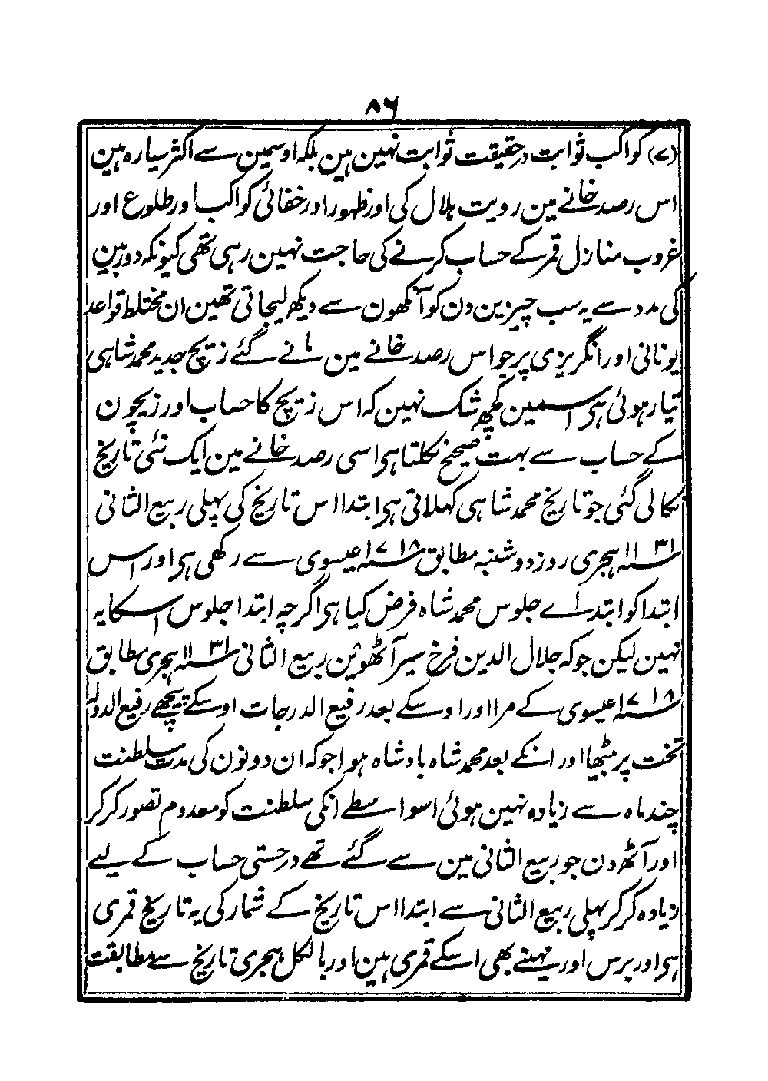 ۸۶
(۷) کواکب ثوابت درحقیقت ثوابت نہین ہین بلکہ اوسمین سے اکثر سیارہ ہین
اس رصد خانے مین رویت ہلال کی اور ظہور اور خفائی کواکب اور طلوع اور
غروب منازل قمر کے حساب کرنے کی حاجت نہین رہی تھی کیونکہ دوربین
کی مدد سے یہ سب چیزین دن کو آنکھون سے دیکھ لیجاتی تھین ان مختلط قواعد
یونانی اور انگریزی پر جو اس رصد خانے مین مانے گئے زیچ جدید محمد شاہی
تیار ہوئی ہی اسمین کچھ شک نہین کہ اس زیچ کا حساب اور زیچون
کے حساب سے بہت صحیح نکلتا ہی اسی رصد خانے مین ایک نئی تاریخ
نکالی گئی جو تاریخ محمد شاہی کہلاتی ہی ابتدا اس تاریخ کی پہلی ربیع الثانی
۱۱۳۱ ہجری روز دوشنبہ مطابق ۱۷۱۸ عیسوی سے رکھی ہی اور اس
ابتدا کو ابتداے جلوس محمد شاہ فرض کیا ہی اگرچہ ابتدا جلوس اسکا یہ
نہین لیکن جو کہ جلال الدین فرخ سیر آٹھوین ربیع الثانی ۱۱۳۱ ہجری مطابق
۱۷۱۸ عیسوی کے مرا اور اوسکے بعد رفیع الدرجات اوسکے پیچھے رفیع الدولہ
تخت پر بٹھیا اور انکے بعد محمد شاہ بادشاہ ہوا جو کہ ان دونون کی مدت سلطنت
چند ماہ سے زیادہ نہین ہوئی اسواسطے انکی سلطنت کو معدوم تصور کر کر
اور آٹھ دن جو ربیع الثانی مین سے گئے تھے درستی حساب کے لیے
زیادہ کر کر پہلی ربیع الثانی سے ابتدا اس تاریخ کے شمار کی یہ تاریخ قمری
ہی اور برس اور مہینے بھی اسکے قمری ہین اور بالکل ہجری تاریخ سے مطابقت